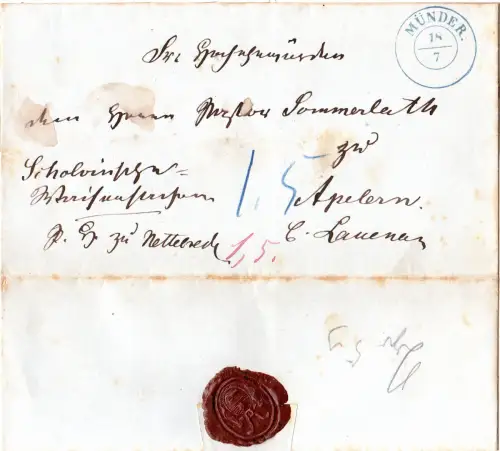 MÜNDER.
18
7
Sr. Hochehrwürden
dem Herrn Pastor Sommerlath
zu
Apelern.
Scholvinsche
Waisensachen
zu Nettelrede
1,5
1,5.
C. Lauenau